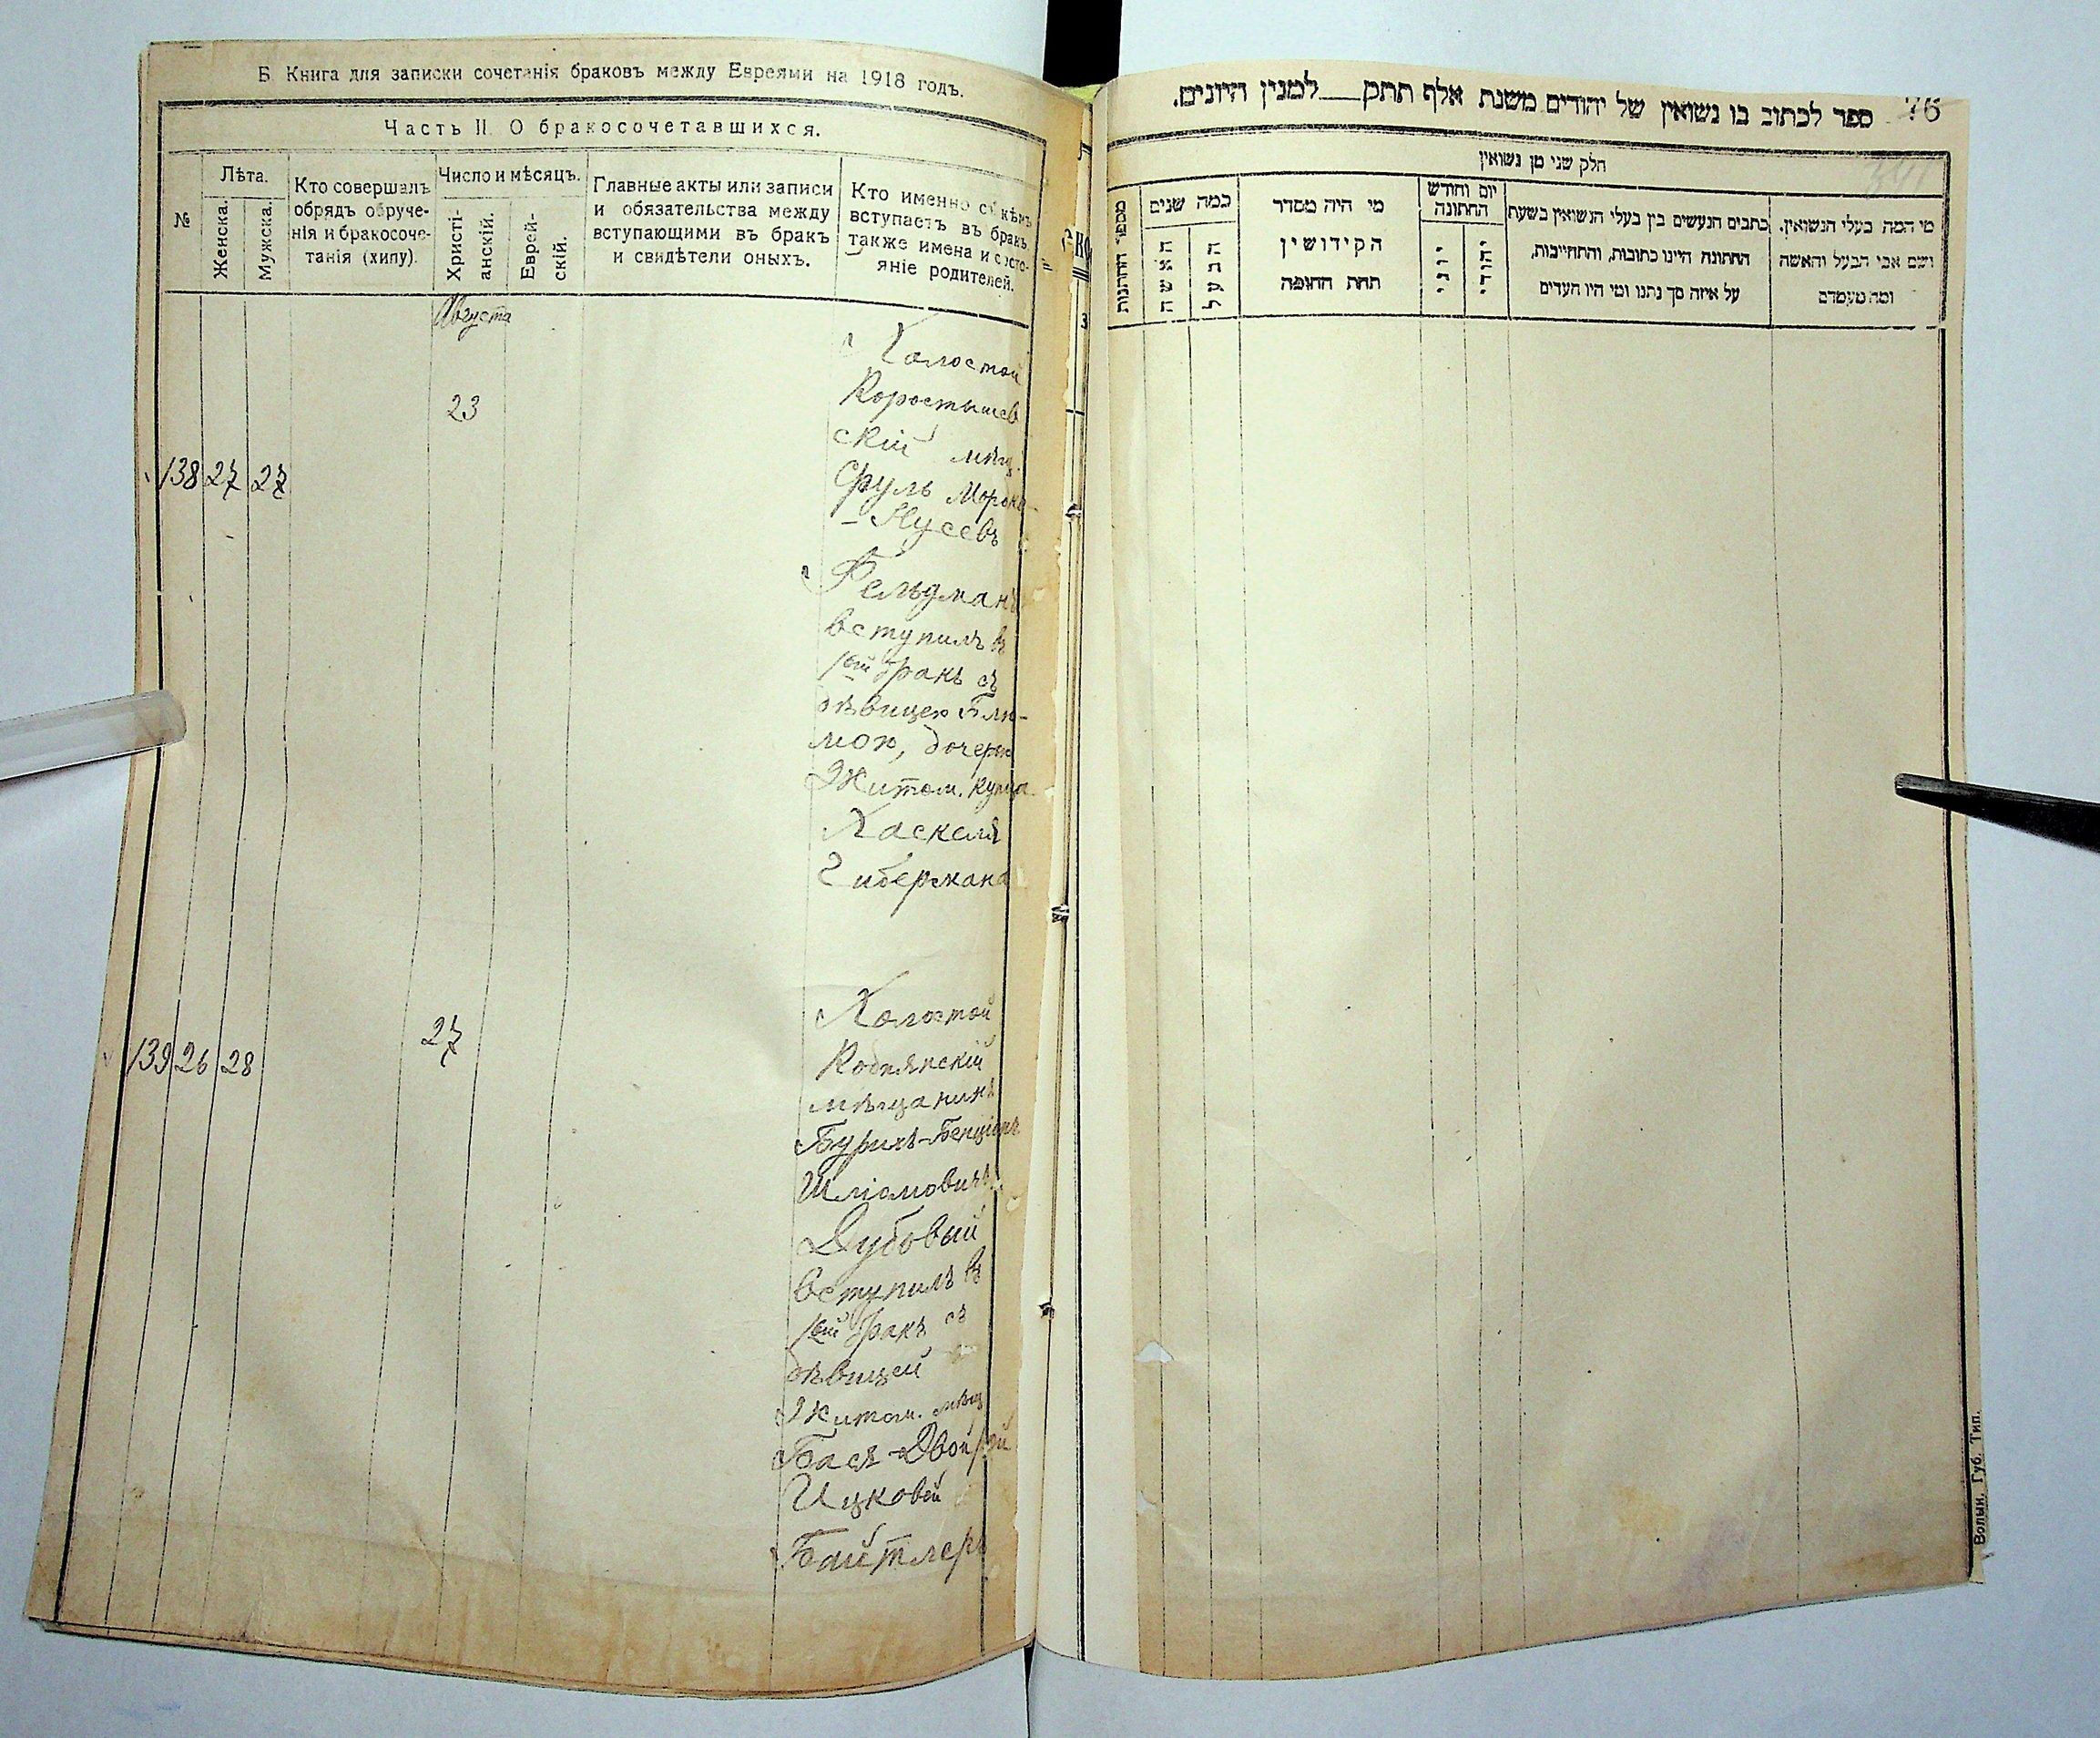 Б. Книга для записки сочетанія браковъ между Евреями на 1918 годъ.
Часть II. О бракосочетавшихся.
№
Лѣта.
Женска.
Мужска.
Кто совершалъ
обрядъ обруче-
нія и бракосоче-
танія (хипу).
Число и мѣсяцъ.
Христі-
анскій.
Еврей-
скій.
Главные акты или записи
и обязательства между
вступающими въ бракъ
и свидѣтели оныхъ.
Кто именно съ кѣмъ
вступаетъ въ бракъ
также имена и состо-
яніе родителей.
Августа
138 27 27
23
Холостой
Коростышев
скій мѣщ.
Сруль Мордко
-Нусевъ
Фельдманъ
вступилъ въ
1ый бракъ съ
дѣвицею Блю-
мою, дочерью
Житом. купца
Хаскеля
Либермана
139 26 28
27
Холостой
мѣщанинъ
Бурихъ-Бенціонъ
Шліомовичъ
Дубовый
вступилъ въ
1ый бракъ съ
дѣвицей
Житом. мѣщ
Бася-Двойрой
Ицковой
Байтлеръ
76
ספר לכתוב בו נשואין של יהודים משנת אלף תתק___למנין היונים.
חלק שני מן נשואין
מספר החתנות
כמה שנים
האשה
הבעל
מי היה מסדר
הקידושין
תחת החופה
יום וחודש
החתונה
יוני
יהודי
כתבים הנעשים בין בעלי הנשואין בשעת
החתונה היינו כתובות, והתחייבות,
על איזה סך נתנו ומי היו העדים
מי המה בעלי הנשואין.
ושם אבי הבעל והאשה
ומה מעמדם
Волын. Губ. Тип.